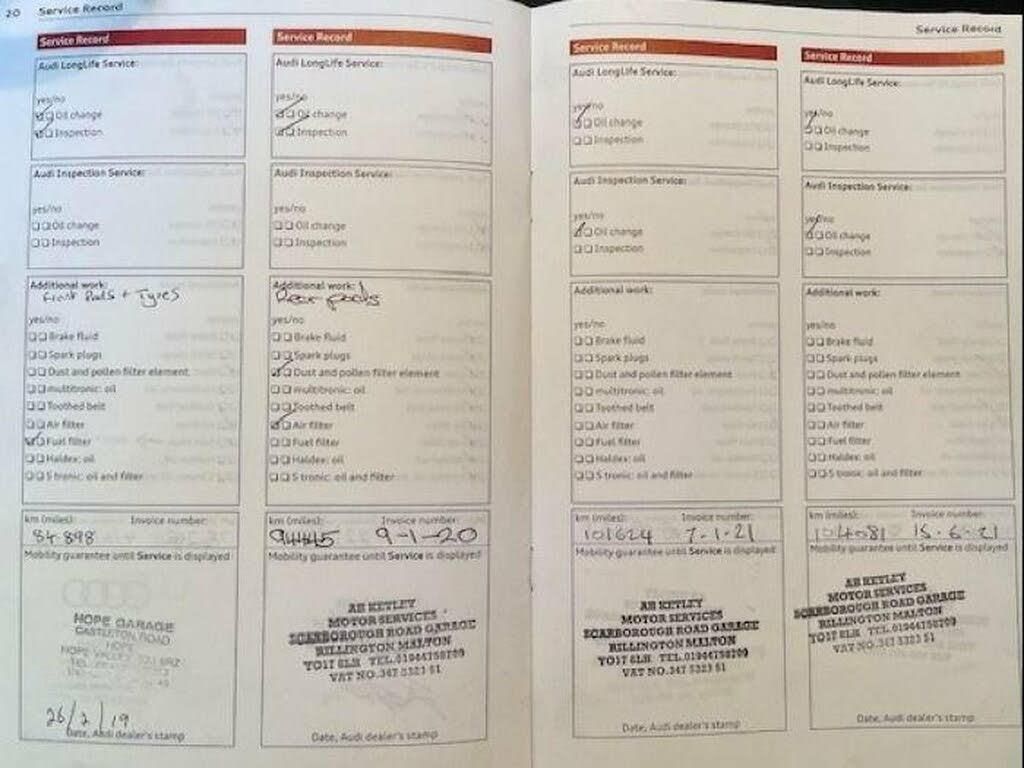 20 Service Record
Service Record
Audi LongLife Service:
yes/no
Oil change
Inspection
Audi Inspection Service:
yes/no
Oil change
Inspection
Additional work:
Front Pads + Tyres
yes/no
Brake fluid
Spark plugs
Dust and pollen filter element
multitronic: oil
Toothed belt
Air filter
Fuel filter
Haldex: oil
S tronic: oil and filter
km (miles): Invoice number:
84898
Mobility guarantee until Service is displayed
HOPE GARAGE
CASTLETON ROAD
HOPE
HOPE VALLEY
26/2/19
Date, Audi dealer's stamp
Service Record
Audi LongLife Service:
yes/no
Oil change
Inspection
Audi Inspection Service:
yes/no
Oil change
Inspection
Additional work:
Rear pads
yes/no
Brake fluid
Spark plugs
Dust and pollen filter element
multitronic: oil
Toothed belt
Air filter
Fuel filter
Haldex: oil
S tronic: oil and filter
km (miles): Invoice number:
9-1-20
Mobility guarantee until Service is displayed
AB KETLEY
MOTOR SERVICES
SCARBOROUGH ROAD GARAGE
RILLINGTON MALTON
YO17 8LH TEL.01944758209
VAT NO.347 5323 51
Date, Audi dealer's stamp
Service Record
Service Record
Audi LongLife Service:
yes/no
Oil change
Inspection
Audi Inspection Service:
yes/no
Oil change
Inspection
Additional work:
yes/no
Brake fluid
Spark plugs
Dust and pollen filter element
multitronic: oil
Toothed belt
Air filter
Fuel filter
Haldex: oil
S tronic: oil and filter
km (miles): Invoice number:
101624 7-1-21
Mobility guarantee until Service is displayed
AB KETLEY
MOTOR SERVICES
SCARBOROUGH ROAD GARAGE
RILLINGTON MALTON
YO17 8LH TEL.01944758209
VAT NO.347 5323 51
Date, Audi dealer's stamp
Service Record
Audi LongLife Service:
yes/no
Oil change
Inspection
Audi Inspection Service:
yes/no
Oil change
Inspection
Additional work:
yes/no
Brake fluid
Spark plugs
Dust and pollen filter element
multitronic: oil
Toothed belt
Air filter
Fuel filter
Haldex: oil
S tronic: oil and filter
km (miles): Invoice number:
104081 15-6-21
Mobility guarantee until Service is displayed
AB KETLEY
MOTOR SERVICES
SCARBOROUGH ROAD GARAGE
RILLINGTON MALTON
YO17 8LH TEL.01944758209
VAT NO.347 5323 51
Date, Audi dealer's stamp